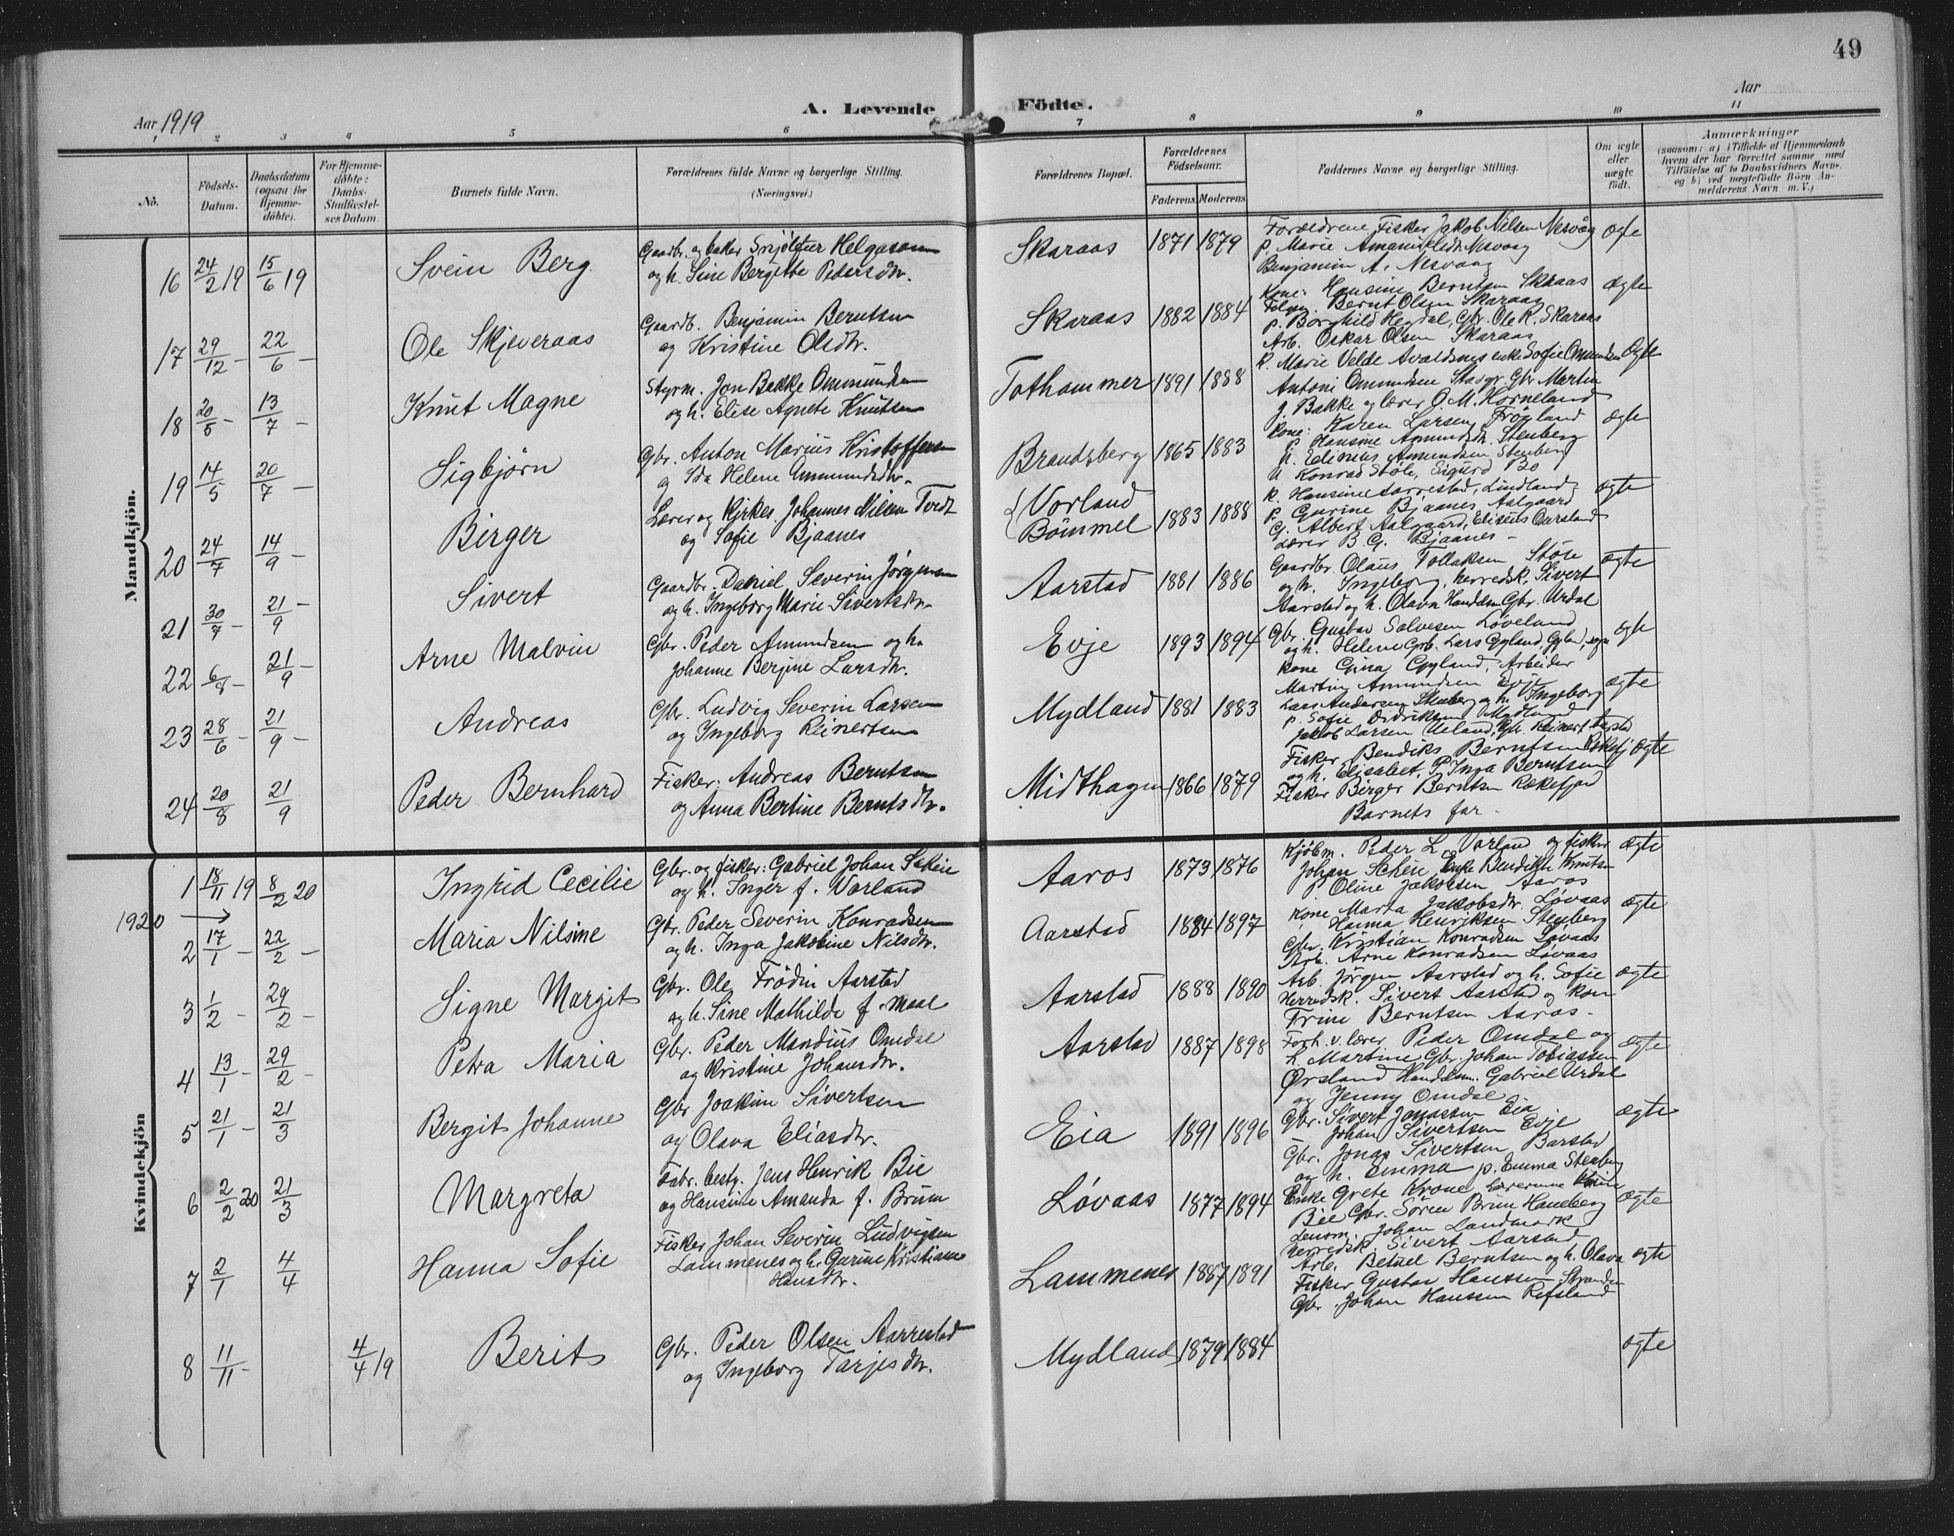 49
Aar 1919
A. Levende Födte.
Aar
1 2 3 4 5 6 7 8 9 10 11
No.
Födsels-Datum.
Daabsdatum (ogsaa for Hjemme-döbte).
For Hjemme-döbte: Daabs-Stadfæstel-ses Datum.
Barnets fulde Navn.
Forældrenes fulde Navne og borgerlige Stilling. (Næringsvei.)
Forældrenes Bopæl.
Forældrenes Födselsaar.
Faderens Moderens
Faddernes Navne og borgerlige Stilling.
Om ægte eller uægte födt.
Anmærkninger
(saasom: a) i Tilfælde af Hjemmedaab
hvem der har forrettet samme, med
Tilföielse af to Daabsvidners Navne,
og b) ved uægtefödte Börn An-
melderens Navn m. V.)
Mandkjön.
16 24/2 19 15/6 19 Svein Berg Gaardbr. og baker Snjolfur Helgason
og h. Sine Bergitte Pedersdtr. Skaraas 1871 1879 Forældrene Fisker Jakob Nilsen Nesvåg
p. Marie Amanda Nesvaag
Benjamin A. Nesvaag ægte
17 29/12 – 22/6 – Ole Skjeveraas Gaardb. Benjamin Berntsen
og Kristine Olsdtr. Skaraas 1882 1884 Kone: Hansine Berntsen Skaraas
Bernt Olsen Skaraas
p. Borghild Hegdal, Gbr. Ole R. Skaraas
Arb. Oskar Olsen Skaraas ægte
18 20/5 – 13/7 – Knut Magne Styrm. Jon Bakke Ommundsen
og h. Elise Agnete Knutsen Tothammer 1891 1888 K. Marie Velde Avaldsnes enke Sofie Omundsen
Antoni Omundsen Stavgr. Gbr. Martin
J. Bakke og lærer O. M. Horneland ægte
19 14/5 20/7 – Sigbjørn Gbr. Anton Marius Kristoffersen
og Ida Helene Ommundsdtr. Brandsberg 1865 1883 Kone: Karen Larsen Frøyland
p. Hansine Amundsdtr. Stenberg
U. Edinius Amundsen Stenberg
U. Konrad Støle, Sigurd Bø ægte
20 24/7 14/9 – Birger Lærer og Kirkes. Johannes Nilsen Tvedt
og Sofie Bjaanes Vorland
Bömmel 1883 1888 K. Hansine Aarrestad, Lindland
p. Gurine Bjaanes Aalgaard
G. Albert Aalgaard, Elisæus Aarsland
Lærer B. G. Bjaanes – ægte
21 30/7 – 21/9 – Sivert Gaardbr. Daniel Severin Jörgensen
og h. Ingeborg Marie Sivertsdtr. Aarstad 1881 1886 Gaardbr. Olaus Tollaksen Støle
og h. Ingeborg, herredsk. Sivert
Aarstad og h. Olava Handelsm Gbr. Urdal ægte
22 6/8 – 21/9 – Arne Malvin Gbr. Peder Amundsen og h.
Johanne Berjine Larsdtr. Evje 1893 1894 Gbr. Gustav Salvesen Løveland
og h. Helene Grb. Lars Eyland, Gbr. og
kone Gina Eyland, Arbeider
Martin Amundsen Evje ægte
23 28/6 – 21/9 – Andreas Gbr. Ludvig Severin Larsen
og Ingeborg Reinertsen Mydland 1881 1883 Lars Andersen Stenberg og h. Ingeborg
p. Sofie Didriksen Mydland
Jakob Larsen Ueland, Gbr. Reinert Aarstad ægte
24 20/8 21/9 Peder Bernhard Fisker: Andreas Berntsen
og Anna Bertine Berntsdtr. Midthagen 1866 1879 Fisker Bendiks Berntsen Rekefj
og h. Elisabet, P. Inga Berntsen
Fisker Birger Berntsen Rekefjord
Barnets far – ægte
Kvindekjön
1 18/11 19 8/2 20 Ingrid Cecilie Gbr. og fisker: Gabriel Johan Scheie
og h. Inger f. Vorland Aaros 1873 1876 Kjöbm. Peder L. Vorland og fisker
Johan Scheie Enke Bendikte Knutsen
p. Oline Jakobsen Aaros ægte
1920 →
2 17/1 – 22/2 – Maria Nilsine Gbr. Peder Severin Konradsen
og h. Inga Jakobine Nilsdtr. Aarstad 1884 1897 Kone Marta Jakobsdtr. Løvaas
Hanna Henriksen Stenberg
Gbr. Kristian Konradsen Løvaas
Arb. Arne Konradsen Løvaas ægte
3 1/2 – 29/2 – Signe Margit Gbr. Ole Frödin Aarstad
og h. Sine Mathilde f. Maal Aarstad 1888 1890 Arb. Jörgen Aarstad og h. Sofie
Herredsk. Sivert Aarstad og kone
Trine Berntsen Aaros – ægte
4 13/1 – 29/2 – Petra Maria Gbr. Peder Mandius Omdal
og Kristine Johansdtr. Aarstad 1887 1898 Forh. v. lærer Peder Omdal og
h. Martine, Gbr. Johan Tobiassen
Ørsland Handelsm. Gabriel Urdal
og Jenny Omdal ægte
5 21/1 – 21/3 Bergit Johanne Gbr Joakim Sivertsen
og Olava Eliasdtr. Eia 1891 1896 Gbr. Sivert Jonassen Eia
Johan Sivertsen Evje
Gbr. Jonas Sivertsen Barstad
og h. Emma p. Emma Stenberg ægte
6 2/2 20 21/3 Margreta Fabr. besty. Jens Henrik Bie
og Hansine Amanda f. Bruun Løvaas 1877 1894 Enke Grete Krone Lærerinne
Bie Gbr. Sören Bruun Haneberg
Lensm. Johan Landmark
Herredsk. Sivert Aarstad ægte
7 2/1 4/4 Hanna Sofie Fisker Johan Severin Ludvigsen
Lammenes og h. Gurine Kristiane
Hansdtr. Lammenes 1887 1891 Arb. Betuel Berntsen og h. Olava
Fisker Gustav Hanssen Stranden
Gbr. Johan Hanssen Refsland ægte
8 11/11 – 4/4 19 Berit Gbr. Peder Olsen Aarrestad
og Ingeborg Tarjesdtr. Mydland 1879 1884 ægte